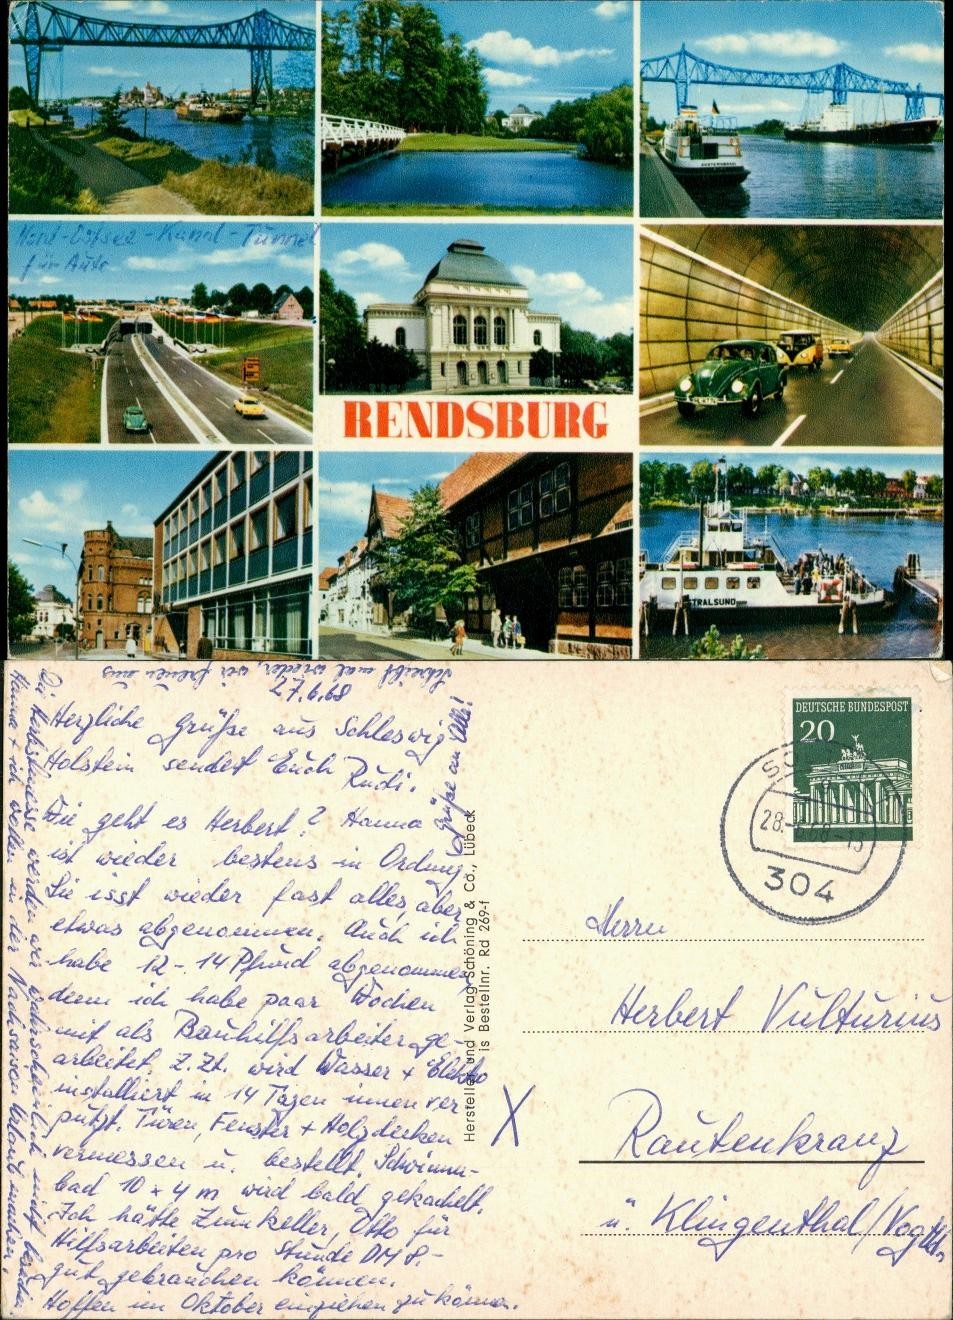 Nord-Ostsee-Kanal-Tunnel
für Auto
RENDSBURG
STRALSUND
Schreibt mal wieder, wir freuen uns
27.6.68
Herzliche Grüße aus Schleswig
Holstein sendet Euch
Rudi.
Wie geht es Herbert? Hanna
ist wieder bestens in Ordnung
Sie isst wieder fast alles, aber
etwas abgenommen. Auch ich
habe 12-14 Pfund abgenommen,
denn ich habe paar Wochen
mit als Bauhilfsarbeiter ge-
arbeitet. Z.Zt. wird Wasser + Elektro
installiert in 14 Tagen innen ver
putzt. Türen, Fenster + Holzdecken
vermessen u. bestellt. Schwimm-
bad 10 x 4 m wird bald gekachelt.
Ich hätte Zunkeller, Otto für
Hilfsarbeiten pro Stunde DM 8.-
gut gebrauchen können.
Hoffen im Oktober einziehen zu können.
Die Herbstmesse werden wir wahrscheinlich nicht
Hanna + ich wollen in der Urlaub machen.
Grüße an Alle!
Hersteller und Verlag Schöning & Co., Lübeck
is Bestellnr. Rd 269-f
X
DEUTSCHE BUNDESPOST
20
304
Herrn
Herbert Vulturius
Rautenkranz
ü. Klingenthal/Vogtl.